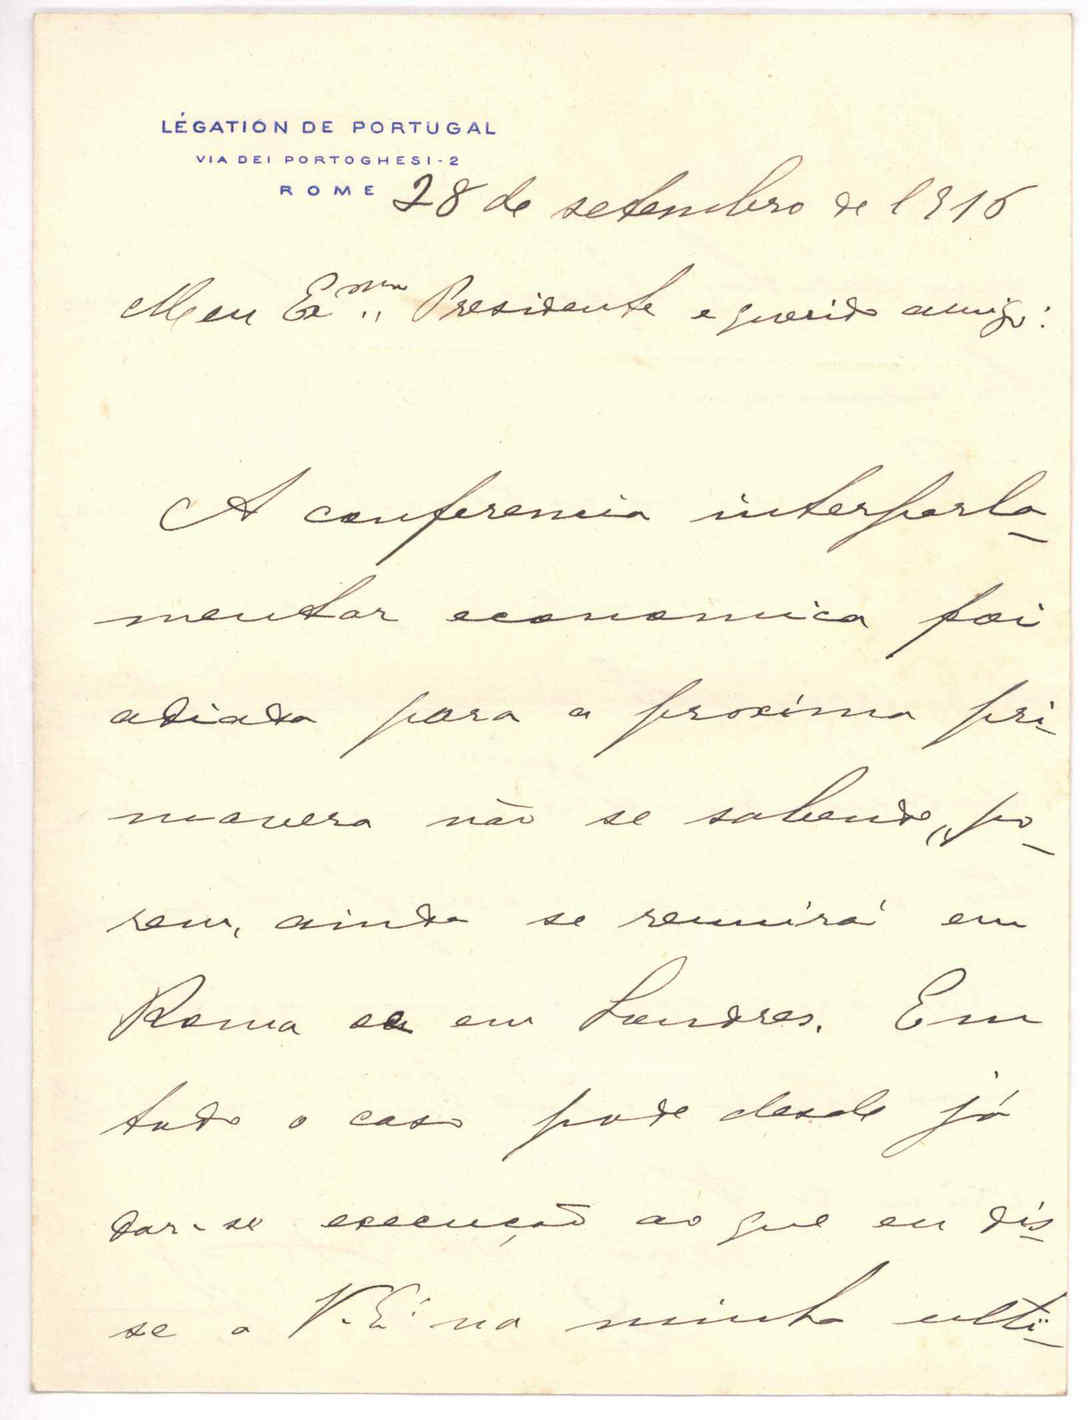 LÉGATION DE PORTUGAL
VIA DEI PORTOGHESI-2
ROME
28 de setembro de 1916
Meu Exmo Presidente e querido amigo:
A conferencia interparla-
mentar economica foi
adiada para a proxima pri-
mavera não se sabendo, po-
rem, ainda se reunirá em
Roma ou em Londres. Em
todo o caso pode desde já
dar-se execução ao que eu dis-
se a V. E.ª na minha ulti-